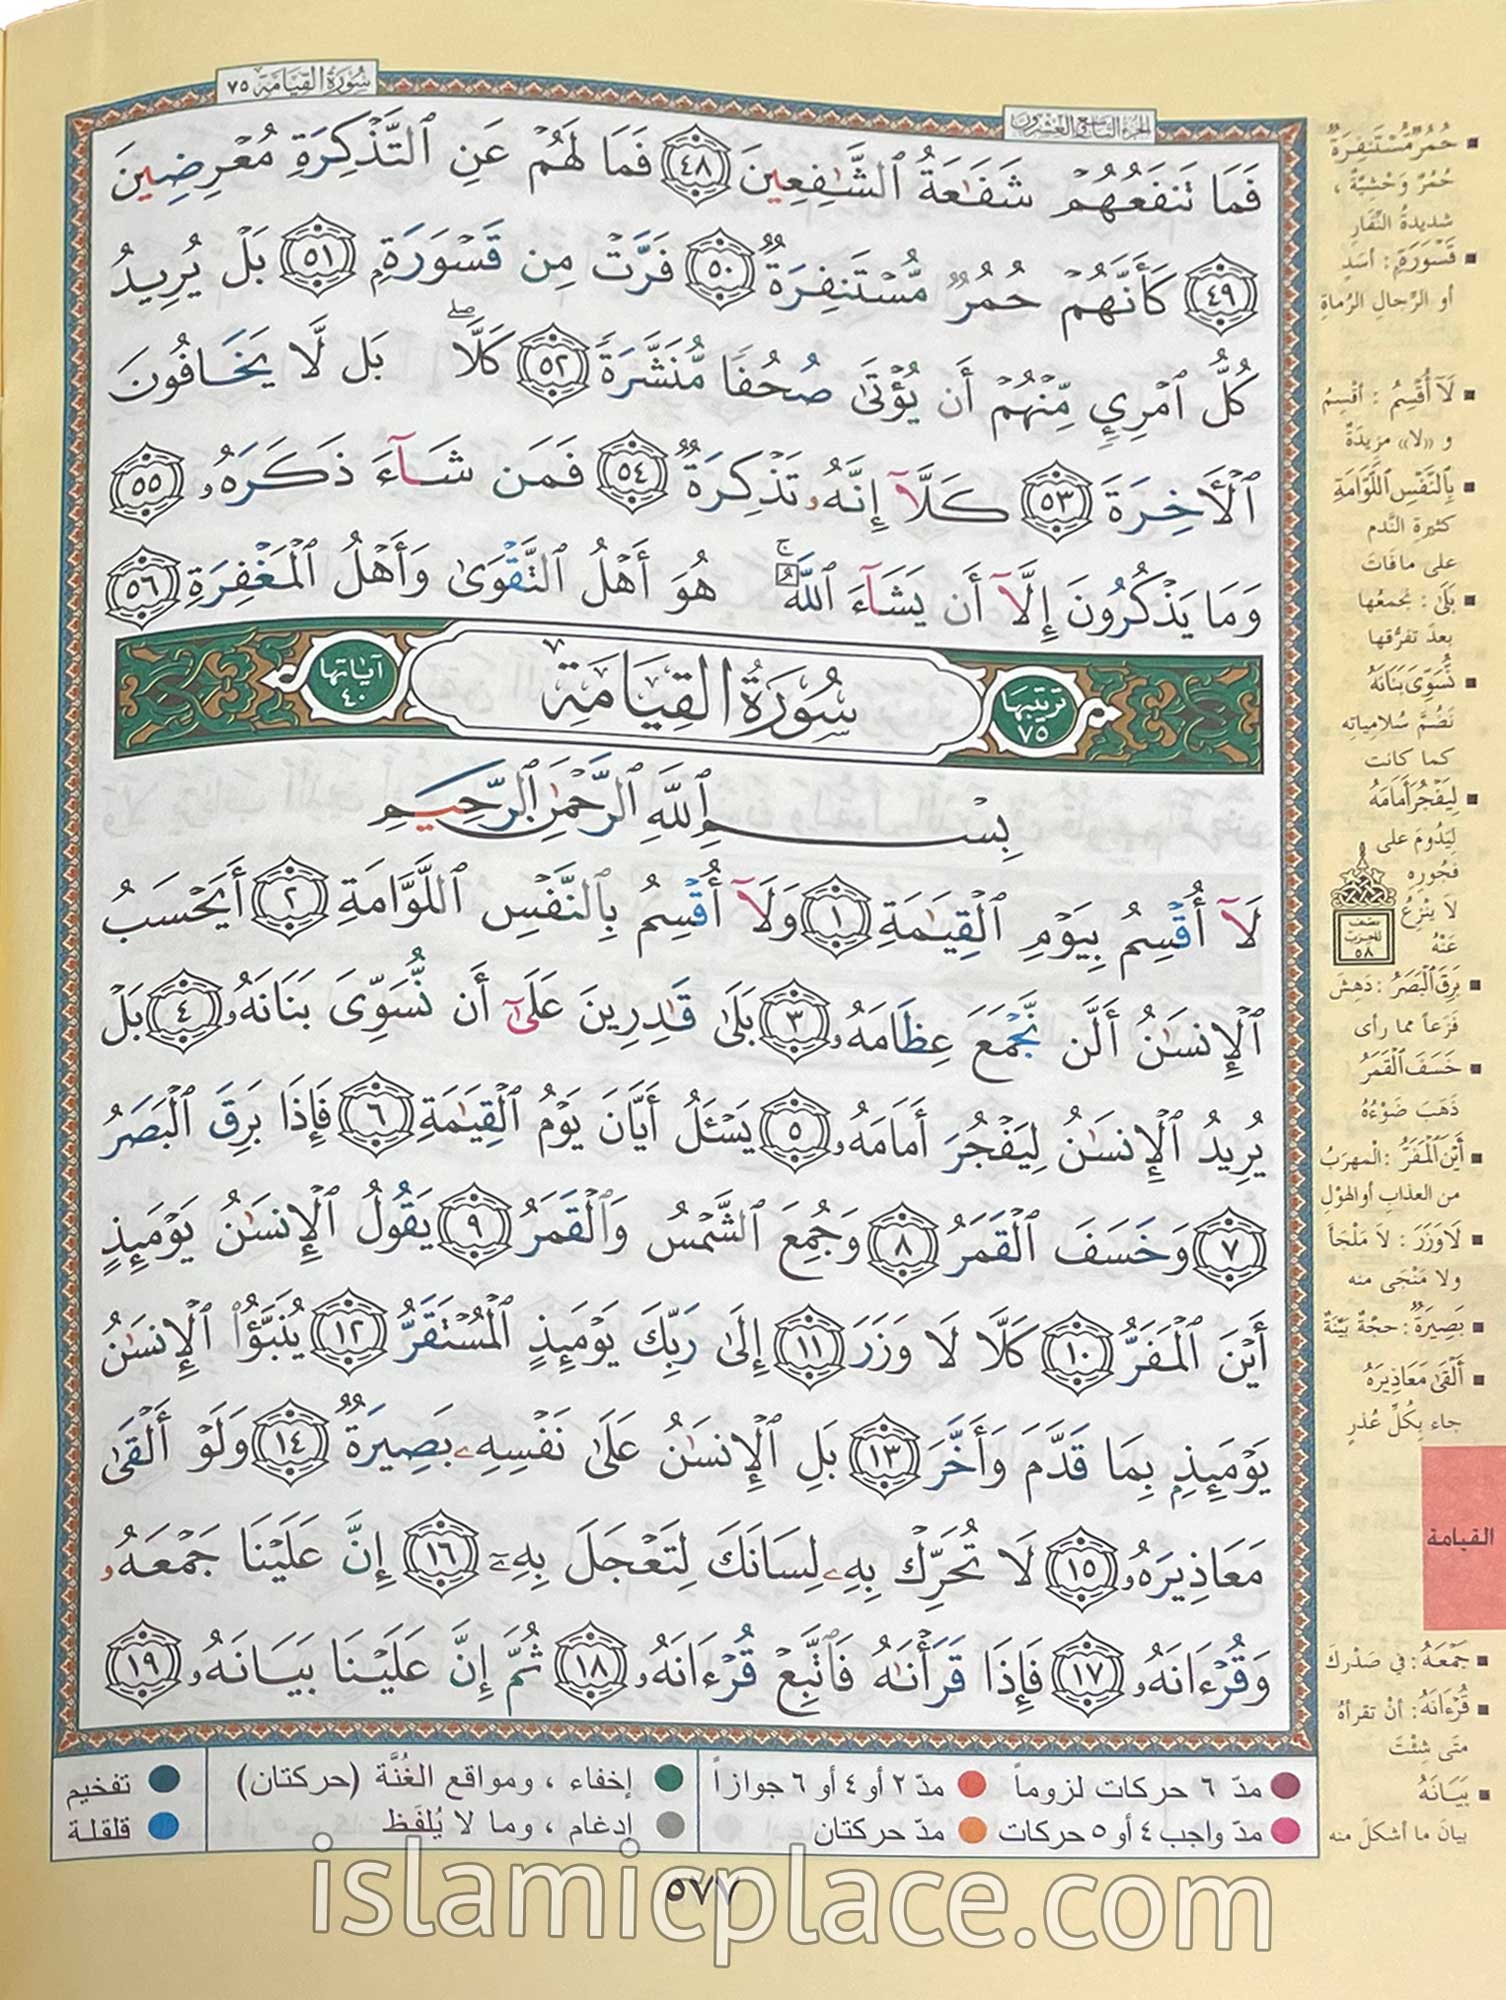 سُورَةُ القِيَامَةِ ٧٥
الجزء التاسع والعشرون
فَمَا تَنفَعُهُمْ شَفَٰعَةُ ٱلشَّٰفِعِينَ ٤٨ فَمَا لَهُمْ عَنِ ٱلتَّذْكِرَةِ مُعْرِضِينَ
٤٩ كَأَنَّهُمْ حُمُرٌ مُّسْتَنفِرَةٌ ٥٠ فَرَّتْ مِن قَسْوَرَةٍ ٥١ بَلْ يُرِيدُ
كُلُّ ٱمْرِئٍ مِّنْهُمْ أَن يُؤْتَىٰ صُحُفًا مُّنَشَّرَةً ٥٢ كَلَّا ۖ بَل لَّا يَخَافُونَ
ٱلْأَخِرَةَ ٥٣ كَلَّآ إِنَّهُۥ تَذْكِرَةٌ ٥٤ فَمَن شَآءَ ذَكَرَهُۥ ٥٥
وَمَا يَذْكُرُونَ إِلَّآ أَن يَشَآءَ ٱللَّهُ ۚ هُوَ أَهْلُ ٱلتَّقْوَىٰ وَأَهْلُ ٱلْمَغْفِرَةِ ٥٦
ترتيبها ٧٥ سُورَةُ القِيَامَةِ آياتها ٤٠
بِسْمِ ٱللَّهِ ٱلرَّحْمَٰنِ ٱلرَّحِيمِ
لَآ أُقْسِمُ بِيَوْمِ ٱلْقِيَٰمَةِ ١ وَلَآ أُقْسِمُ بِٱلنَّفْسِ ٱللَّوَّامَةِ ٢ أَيَحْسَبُ
ٱلْإِنسَٰنُ أَلَّن نَّجْمَعَ عِظَامَهُۥ ٣ بَلَىٰ قَٰدِرِينَ عَلَىٰٓ أَن نُّسَوِّىَ بَنَانَهُۥ ٤ بَلْ
يُرِيدُ ٱلْإِنسَٰنُ لِيَفْجُرَ أَمَامَهُۥ ٥ يَسْـَٔلُ أَيَّانَ يَوْمُ ٱلْقِيَٰمَةِ ٦ فَإِذَا بَرِقَ ٱلْبَصَرُ
٧ وَخَسَفَ ٱلْقَمَرُ ٨ وَجُمِعَ ٱلشَّمْسُ وَٱلْقَمَرُ ٩ يَقُولُ ٱلْإِنسَٰنُ يَوْمَئِذٍ
أَيْنَ ٱلْمَفَرُّ ١٠ كَلَّا لَا وَزَرَ ١١ إِلَىٰ رَبِّكَ يَوْمَئِذٍ ٱلْمُسْتَقَرُّ ١٢ يُنَبَّؤُا۟ ٱلْإِنسَٰنُ
يَوْمَئِذٍ بِمَا قَدَّمَ وَأَخَّرَ ١٣ بَلِ ٱلْإِنسَٰنُ عَلَىٰ نَفْسِهِۦ بَصِيرَةٌ ١٤ وَلَوْ أَلْقَىٰ
مَعَاذِيرَهُۥ ١٥ لَا تُحَرِّكْ بِهِۦ لِسَانَكَ لِتَعْجَلَ بِهِۦٓ ١٦ إِنَّ عَلَيْنَا جَمْعَهُۥ
وَقُرْءَانَهُۥ ١٧ فَإِذَا قَرَأْنَٰهُ فَٱتَّبِعْ قُرْءَانَهُۥ ١٨ ثُمَّ إِنَّ عَلَيْنَا بَيَانَهُۥ ١٩
حُمُرٌ مُّسْتَنفِرَةٌ
حُمُرٌ وَحْشِيَّةٌ ،
شديدةُ النِّفَارِ
قَسْوَرَةٍ : أسَدٍ
أو الرِّجالِ الرُّماةِ
لَآ أُقْسِمُ : أُقْسِمُ
و «لا» مزيدَةٌ
بِٱلنَّفْسِ ٱللَّوَّامَةِ
كثيرةِ النَّدم
على ما فاتَ
بَلَىٰ : نجمعُها
بعدَ تفرُّقها
نُّسَوِّىَ بَنَانَهُ
نَضُمَّ سُلامِياتِه
كما كانت
لِيَفْجُرَ أَمَامَهُ
لِيَدُومَ على
فُجُورِهِ
لا يَنْزِعُ
عَنْهُ
نصف
للحزب
٥٨
بَرِقَ ٱلْبَصَرُ : دَهِشَ
فَزَعاً مما رأى
خَسَفَ ٱلْقَمَرُ
ذَهَبَ ضَوْءُهُ
أَيْنَ ٱلْمَفَرُّ : المهرَبُ
من العذابِ أو الهوْلِ
لَا وَزَرَ : لا مَلْجَأَ
ولا مَنْجَى منه
بَصِيرَةٌ : حجَّةٌ بَيِّنَةٌ
أَلْقَىٰ مَعَاذِيرَهُ
جاء بِكُلِّ عُذرٍ
القيامة
جَمْعَهُ : في صَدْرِكَ
قُرْءَانَهُ : أنْ تقرأهُ
متَى شئْتَ
بَيَانَهُ
بيانَ ما أشكلَ منه
مدّ ٦ حركات لزوماً
مدّ ٢ أو ٤ أو ٦ جوازاً
إخفاء ، ومواقع الغُنَّة (حركتان)
تفخيم
مدّ واجب ٤ أو ٥ حركات
مدّ حركتان
إدغام ، وما لا يُلفَظ
قلقلة
٥٧٧
islamicplace.com